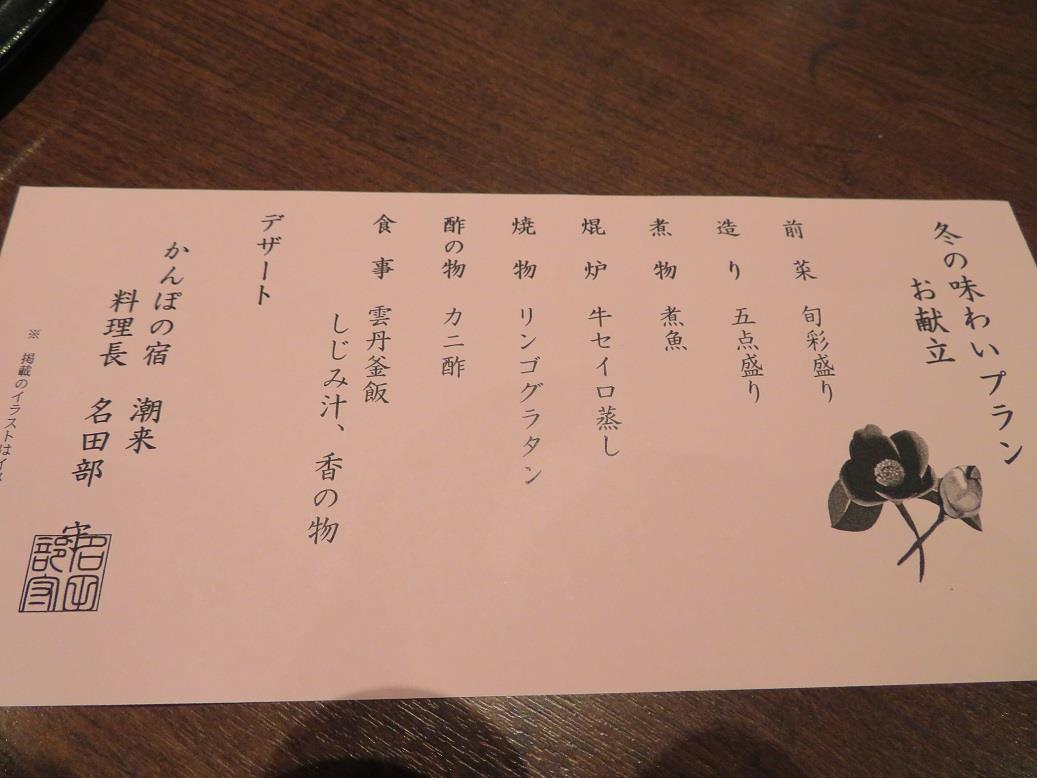 冬の味わいプラン
お献立
前菜 旬彩盛り
造り 五点盛り
煮物 煮魚
焜炉 牛セイロ蒸し
焼物 リンゴグラタン
酢の物 カニ酢
食事 雲丹釜飯
しじみ汁、香の物
デザート
かんぽの宿 潮来
料理長 名田部 守
※ 掲載のイラストはイメ